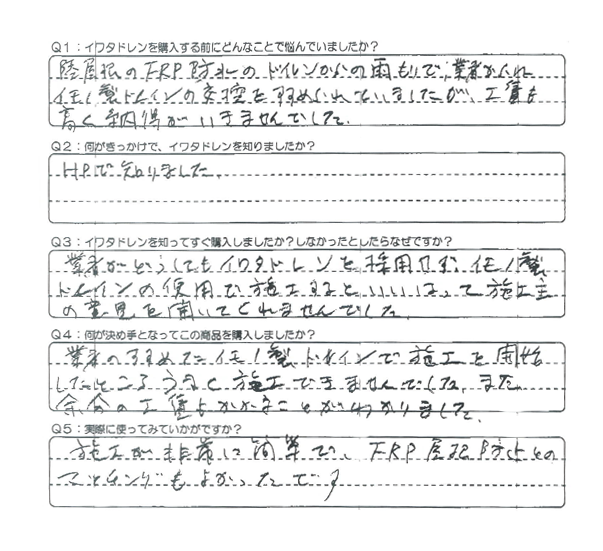 Q1：イワタドレンを購入する前にどんなことで悩んでいましたか？
陸屋根のFRP防水のドレインからの雨もりで、業者から
製ドレインの交換をすすめられていましたが、工賃も
高く納得がいきませんでした。
Q2：何がきっかけで、イワタドレンを知りましたか？
HPで知りました。
Q3：イワタドレンを知ってすぐ購入しましたか？しなかったとしたらなぜですか？
業者がどうしてもイワタドレンを採用せず、イモノ製
ドレインの使用で施工するといいはって施工主
の意見を聞いてくれませんでした。
Q4：何が決め手となってこの商品を購入しましたか？
業者のすすめたイモノ製ドレインで施工を開始
したところうまく施工できませんでした。また
余分の工賃もかかることがわかりました。
Q5：実際に使ってみていかがですか？
施工が非常に簡単で、FRP屋根防水との
マッチングもよかったです